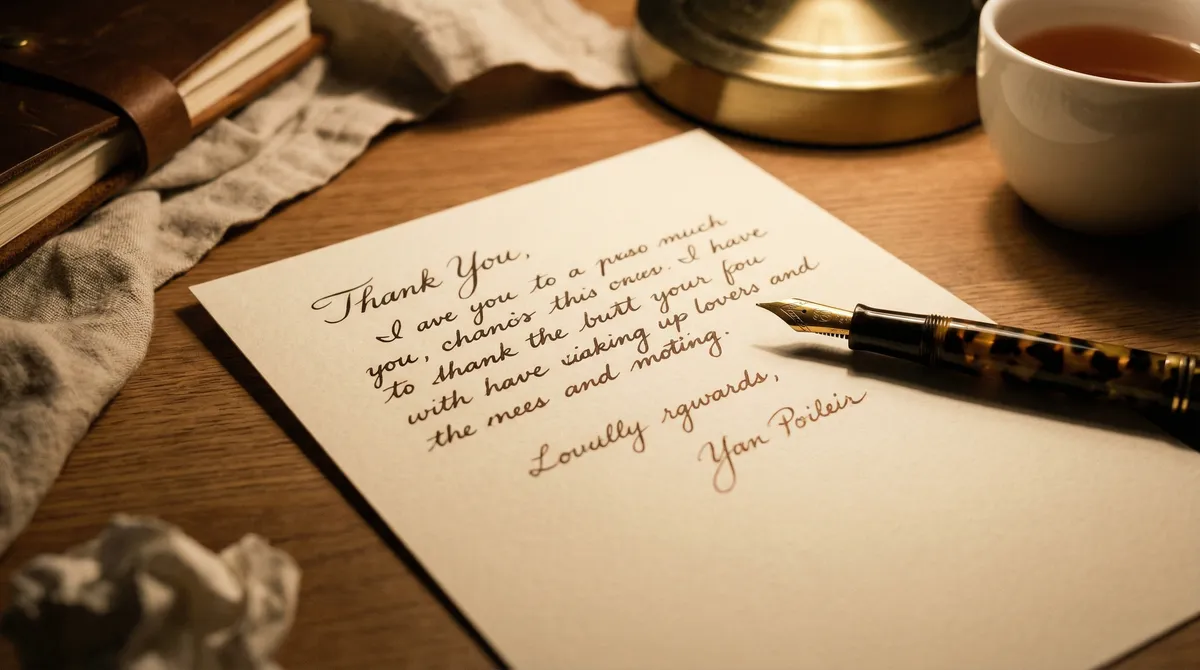 Thank You,
I ave you to a puso much
you, chanois this onev. I have
to thank the butt your fou
with have viaking up lovers and
the mees and moting.
Lovully rgwards,
Yan Poileir